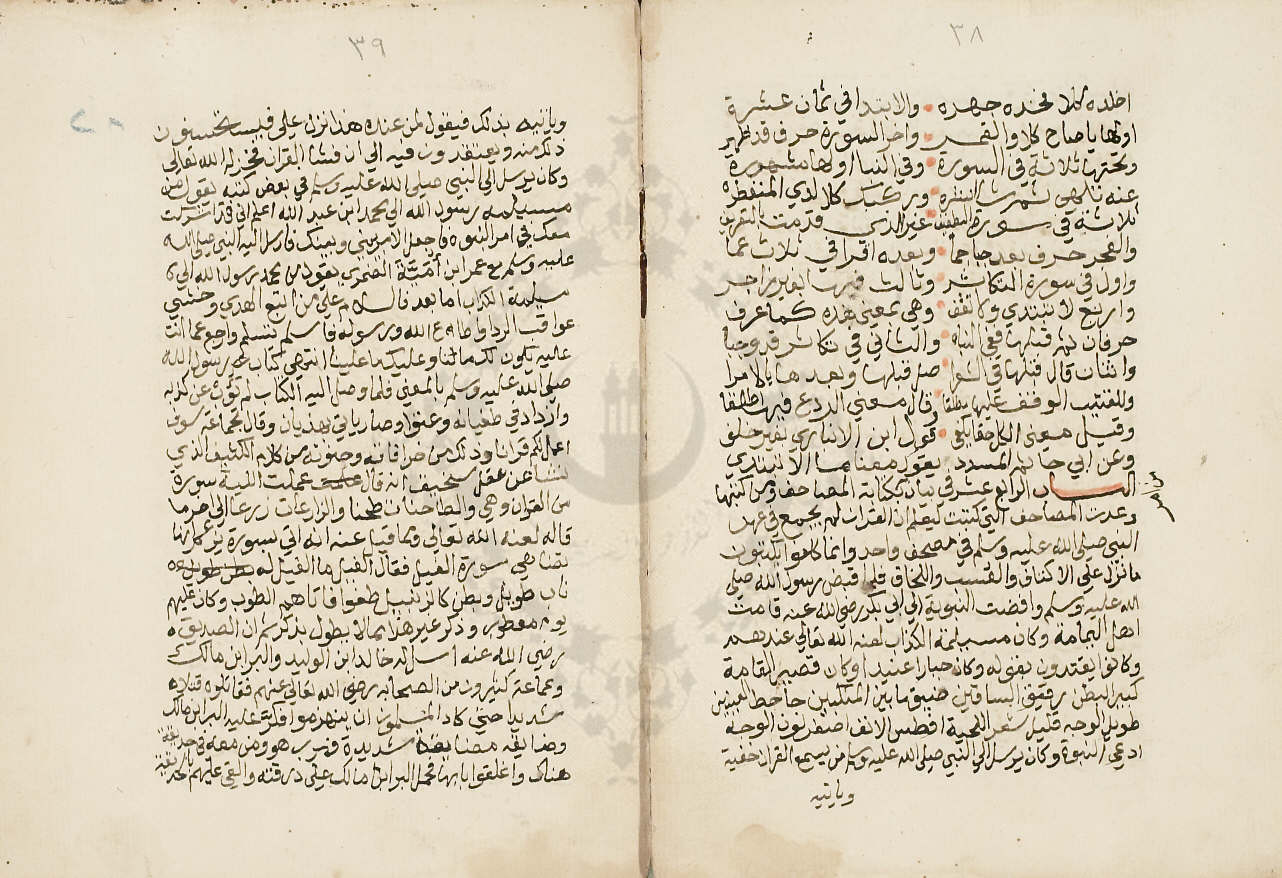 ٣٨
اخلده كلا فخده جهده والابتدا في ثمان عشرة
اولها يا صاح كلا والقمر واخر السورة حرف قد ظهر
وتحتها ثلاثة في السورة وفي النبا اولها مشهورة
عنه تلهى ثم شا انشره وركبك كلا لذي المنفطره
ثلاثة في سورة التطفيف غير الذي قدمت
والفجر حرف بعد حبا جما وبعده اقرا في ثلاث عما
واول في سورة التكاثر وثالث فيها
واربع لا تبتدي ولا تقف وهي بمعنى هذه كما عرف
حرفان ثم قبلها ففي النبا والثاني في تكاثر قد وجبا
واثنتان قال قبلها في الشعرا صل قبلها وبعدها بلا مرا
وللقتيبي الوقف عليها مطلقا وقال معنى الردع فيها اطلقا
وقيل معنى الكل حقا يلفى وقول ابن الانباري بغير خلف
وعن ابي حاتم المسدد يقول معناها الا لتبتدي
الباب الرابع عشر في بيان كتابة المصاحف ومن كتبها
وعدت المصاحف التي كتبت ليعلم ان القران لم يجمع في عهد
النبي صلى الله عليه وسلم في مصحف واحد وانما كانوا يكتبون
ما نزل على الاكتاف والعسب واللخاف فلما قبض رسول الله صلى
الله عليه وسلم وافضت النوبة الى ابي بكر رضي الله عنه قامت
اهل اليمامة وكان مسيلمة الكذاب لعنه الله تعالى عندهم
وكانوا يقتدون بقوله وكان جبارا عنيدا وكان قصير القامة
كبير البطن رقيق الساقين ضيق ما بين المنكبين جاحظ العينين
طويل الوجه قليل شعر اللحية افطس الانف اصفر لون الوجه
ادعى النبوة وكان يرسل الى النبي صلى الله عليه وسلم من يسمع القران خفية
وياتيه
٣٩
وياتيه بذلك فيقول لمن عنده هذا نزل علي فيستحسنون
ذلك منه ويعتقدون فيه الى ان فشا القران فخزله الله تعالى
وكان يرسل الى النبي صلى الله عليه وسلم في بعض كتبه يقول من
مسيلمه رسول الله الى محمد ابن عبد الله اعلم اني قد اشتركت
معك في امر النبوة فاجعل الامر بيني وبينك فارسل اليه النبي صلى الله
عليه وسلم مع عمر ابن أمية الضمري يقول من محمد رسول الله الى
مسيلمة الكذاب اما بعد فالسلام على من اتبع الهدى وخشي
عواقب الردا واطاع الله ورسوله فاسلم تسلم وارجع عما انت
عليه يكون لك مالنا وعليك ما علينا انتهى كتاب محمد رسول الله
صلى الله عليه وسلم بالمعنى فلما وصل اليه الكتاب لم يتوب عن كذبه
وازداد في طغيانه وعتوا وصار ياتي بهذيان وقال لجماعة سوف
اعمل لكم قرانا وذلك من خرافاته وجنونه من كلام الكثيف الذي
نشا عن عقل سخيف انه قال عملت الليلة سورة
من القران وهي والطاحنات طحنا والزارعات زرعا الى اخر ما
قاله لعنه الله تعالى وكما قيل عنه انه اتى بسورة يزعم انها
تضاهي سورة الفيل فقال الفيل ما الفيل له
ناب طويل وبطن كالزنبيل طغوا فاتاهم الطوب وكان عليهم
يوم معطوب وذكر غير هذا مما لا يطول بذكر ثم ان الصديق
رضي الله عنه ارسل له خالد ابن الوليد والبرا ابن مالك
وجماعة كثيرون من الصحابه رضي الله تعالى عنهم فقاتلوه قتلا
شديدا حتى كاد المسلمون ان ينهزموا فكر عليه البرا ابن مالك
وضايقه مضايقة شديدة فهرب هو ومن معه في حديقة
هناك واغلقوا بابها فحمل البرا ابن مالك على درقته والقي عليهم بالحديقة